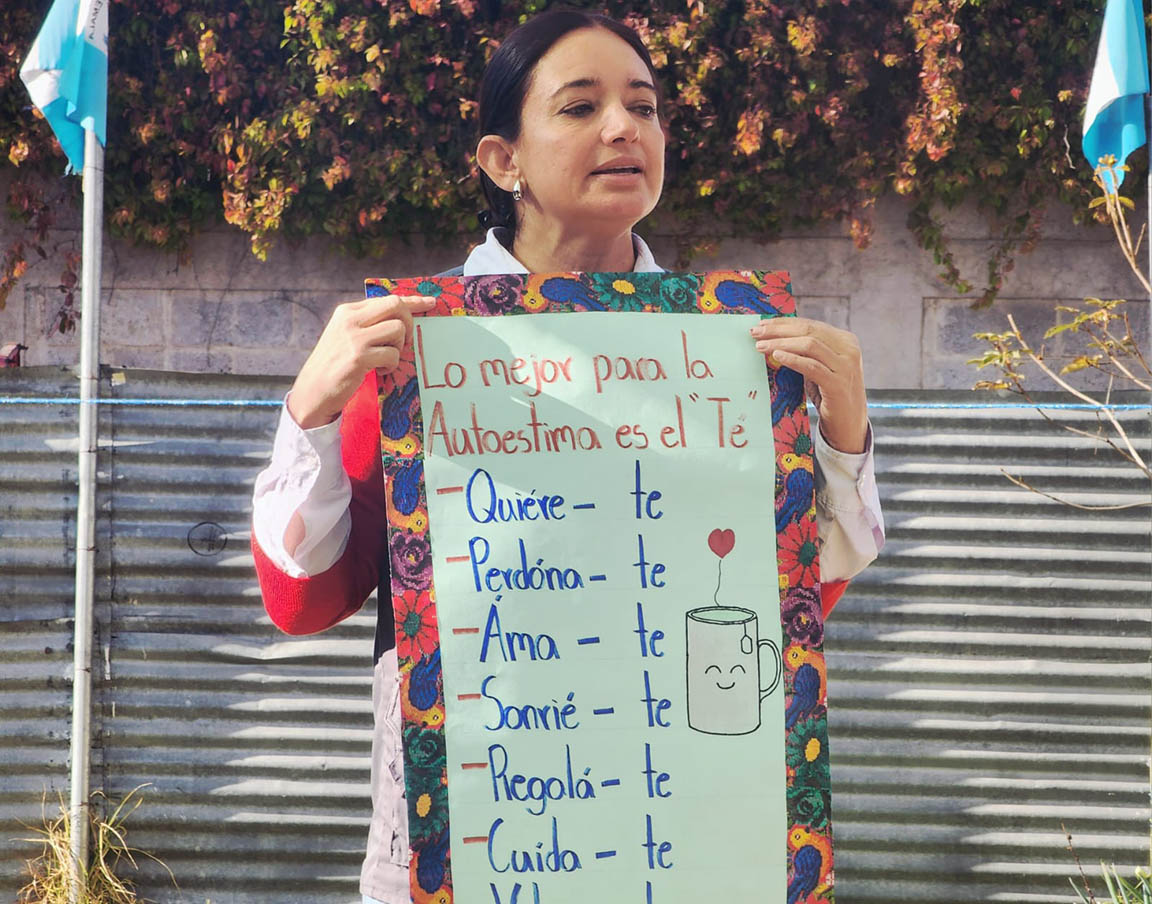 Lo mejor para la
Autoestima es el "Té"
- Quiére - te
- Perdóna - te
- Áma - te
- Sonrié - te
- Regalá - te
- Cuida - te
te